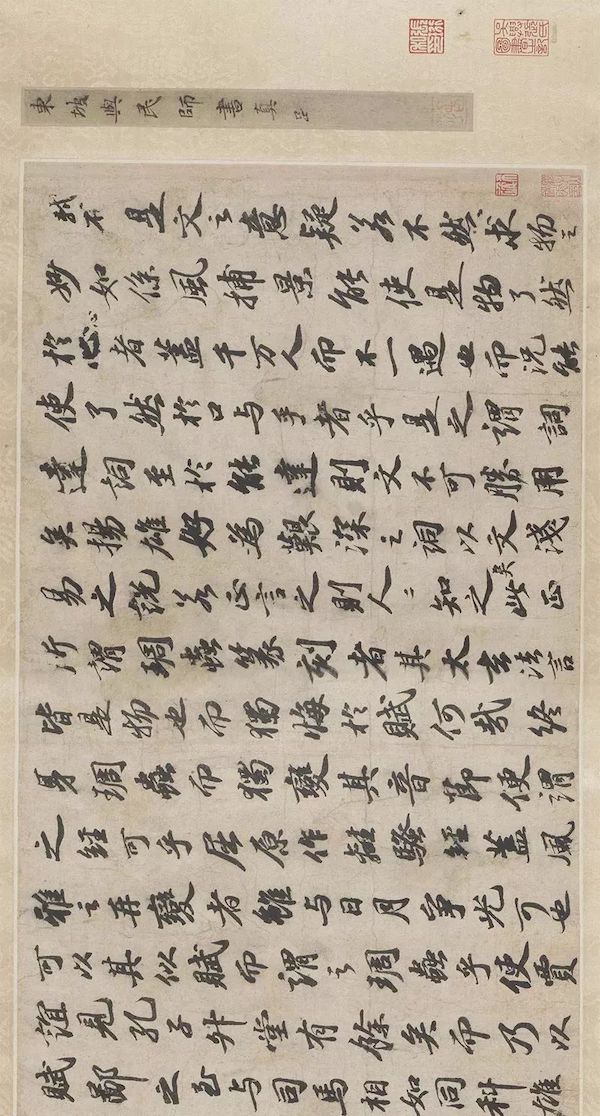 東坡與民師書真跡
不是文之意疑若不然求物之
妙如係風捕景能使是物了然
於心者蓋千万人而不一遇也而況能
使了然於口与手者乎是之謂詞
達詞至於能達則文不可勝用
矣揚雄好為艱深之詞以文淺
易之說若正言之則人〻知之矣此正
所謂琱蟲篆刻者其太玄法言
皆是物也而獨悔於賦何哉終
身琱蟲而獨變其音節便謂
之經可乎屈原作離騷經蓋風
雅之再變者雖与日月爭光可也
可以其似賦而謂之琱蟲乎使賈
誼見孔子升堂有餘矣而乃以
賦鄙之至与司馬相如同科雄